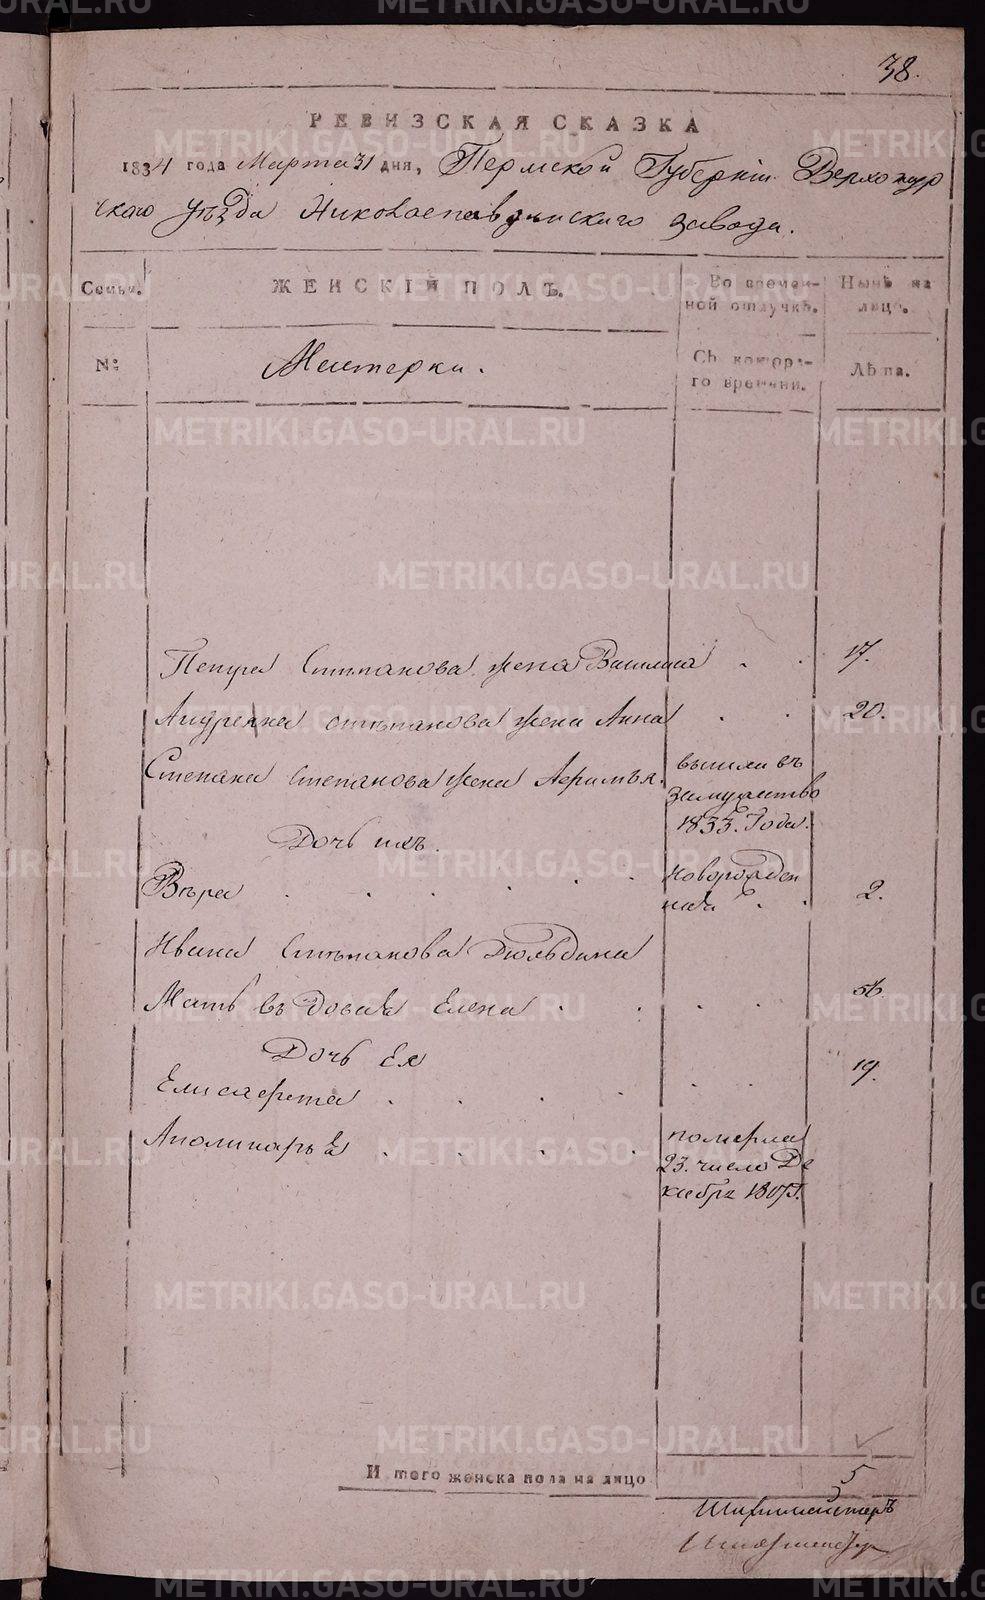 38.
РЕВИЗСКАЯ СКАЗКА
1834 года Марта 31 дня, Пермской Губернiи Верхотур
скаго уѣзда Николаепавдинскаго завода.
Семьи.
ЖЕНСКIЙ ПОЛЪ.
Во времен-
ной отлучкѣ.
Нынѣ на
лицо.
№
Мастерки.
Съ которо-
го времени.
Лѣта.
Петра Стѣпанова жена Василиса . . 17.
Андреяна стѣпанова жена Анна . . 20.
Степана степанова жена
вышла въ
замужство
1833. Года.
Дочь ихъ.
Вѣра . . . . . .
новорожден
ная . . 2.
Ивана Стѣпанова Дюльдина
Мать вдовая Елена . . . . 56.
Дочь Ея
Елисавета . . . . . . 19.
Аполинарья . . . .
померла
23. число Де
кабря
И того женска пола на лицо
5
Шихтмейстеръ
METRIKI.GASO-URAL.RU